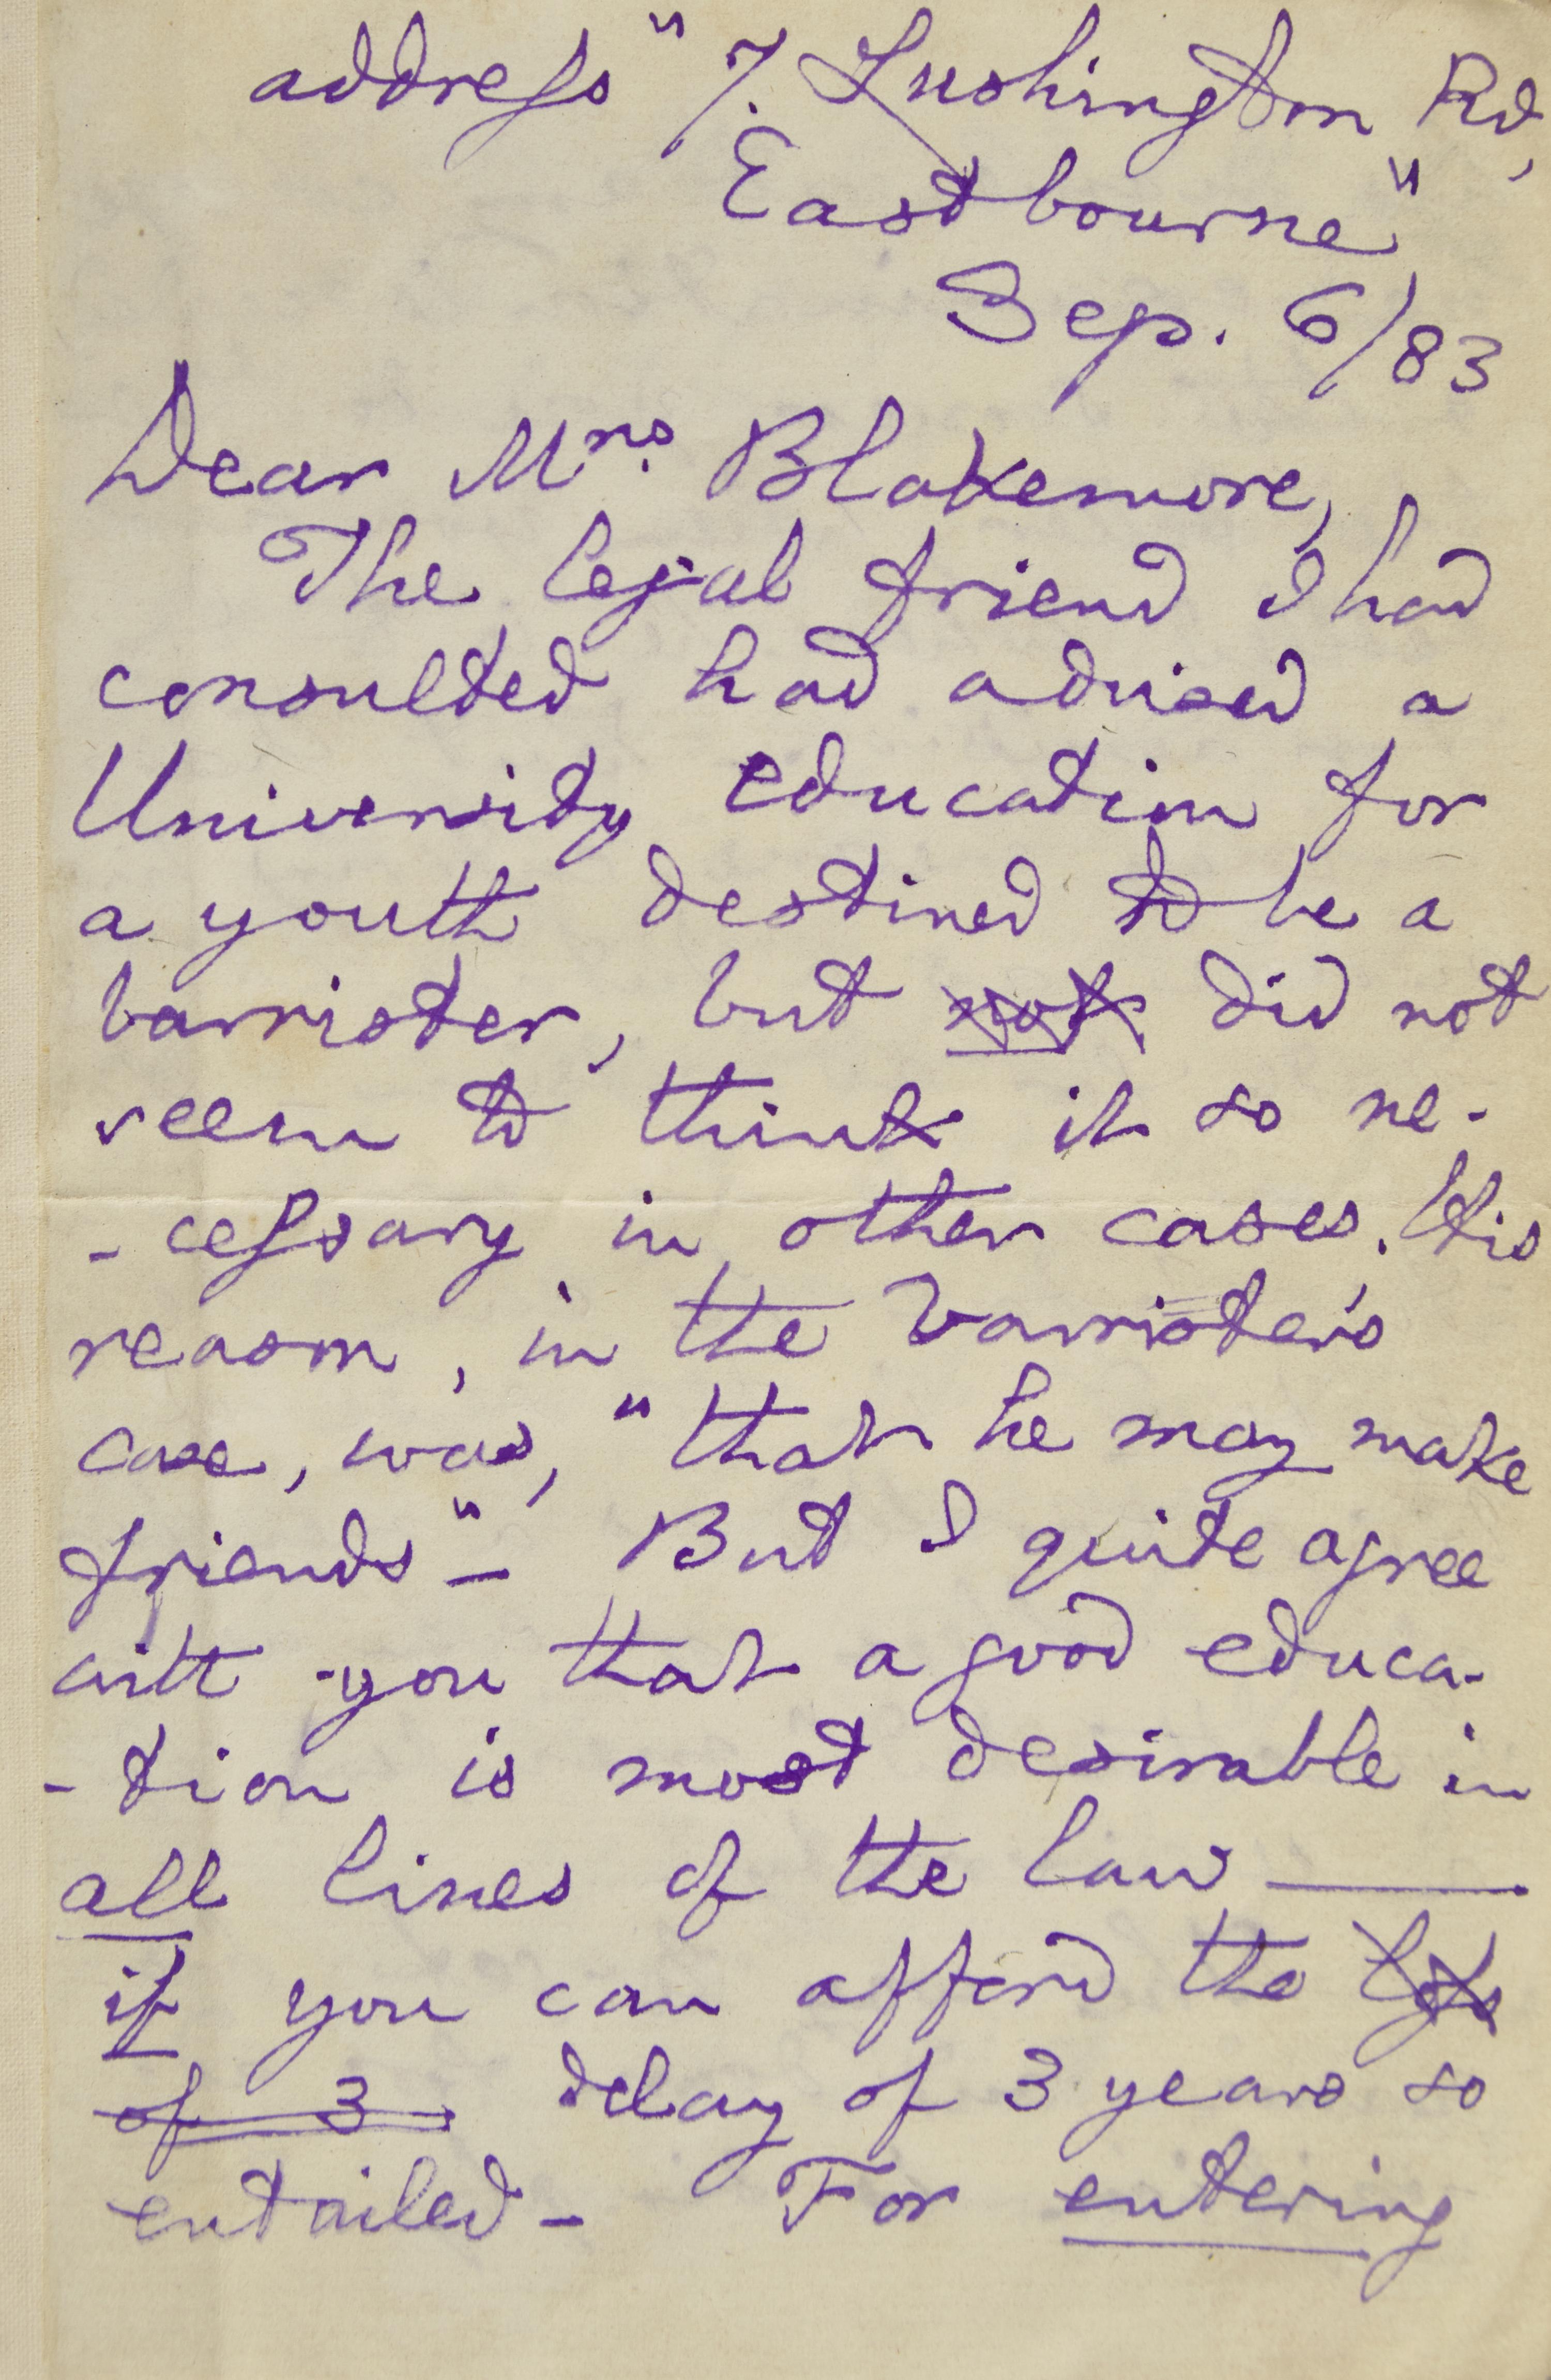 address "7. Lushington Rd,
Eastbourne"
Sep. 6/83
Dear Mrs. Blakemore,
The legal friend I had
consulted had advised a
University education for
a youth destined to be a
barrister, but not did not
seem to think it so ne-
-cessary in other cases. His
reason, in the barrister's
case, was, "that he may make
friends" — But I quite agree
with you that a good educa-
-tion is most desirable in
all lines of the law —
if you can afford the loss
of 3 delay of 3 years so
entailed — For entering